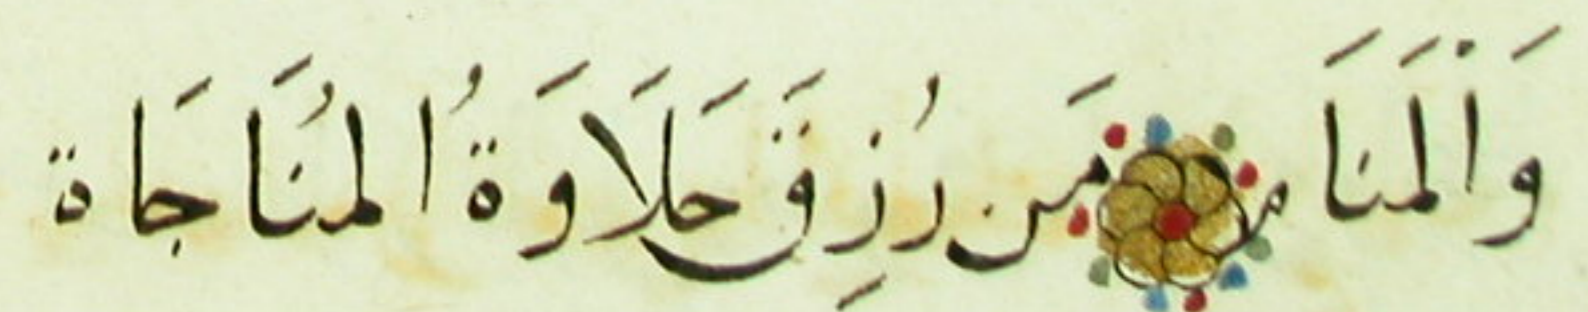 وَالْمَنَامِ مَن رُزِقَ حَلَاوَةُ المُنَاجَاة